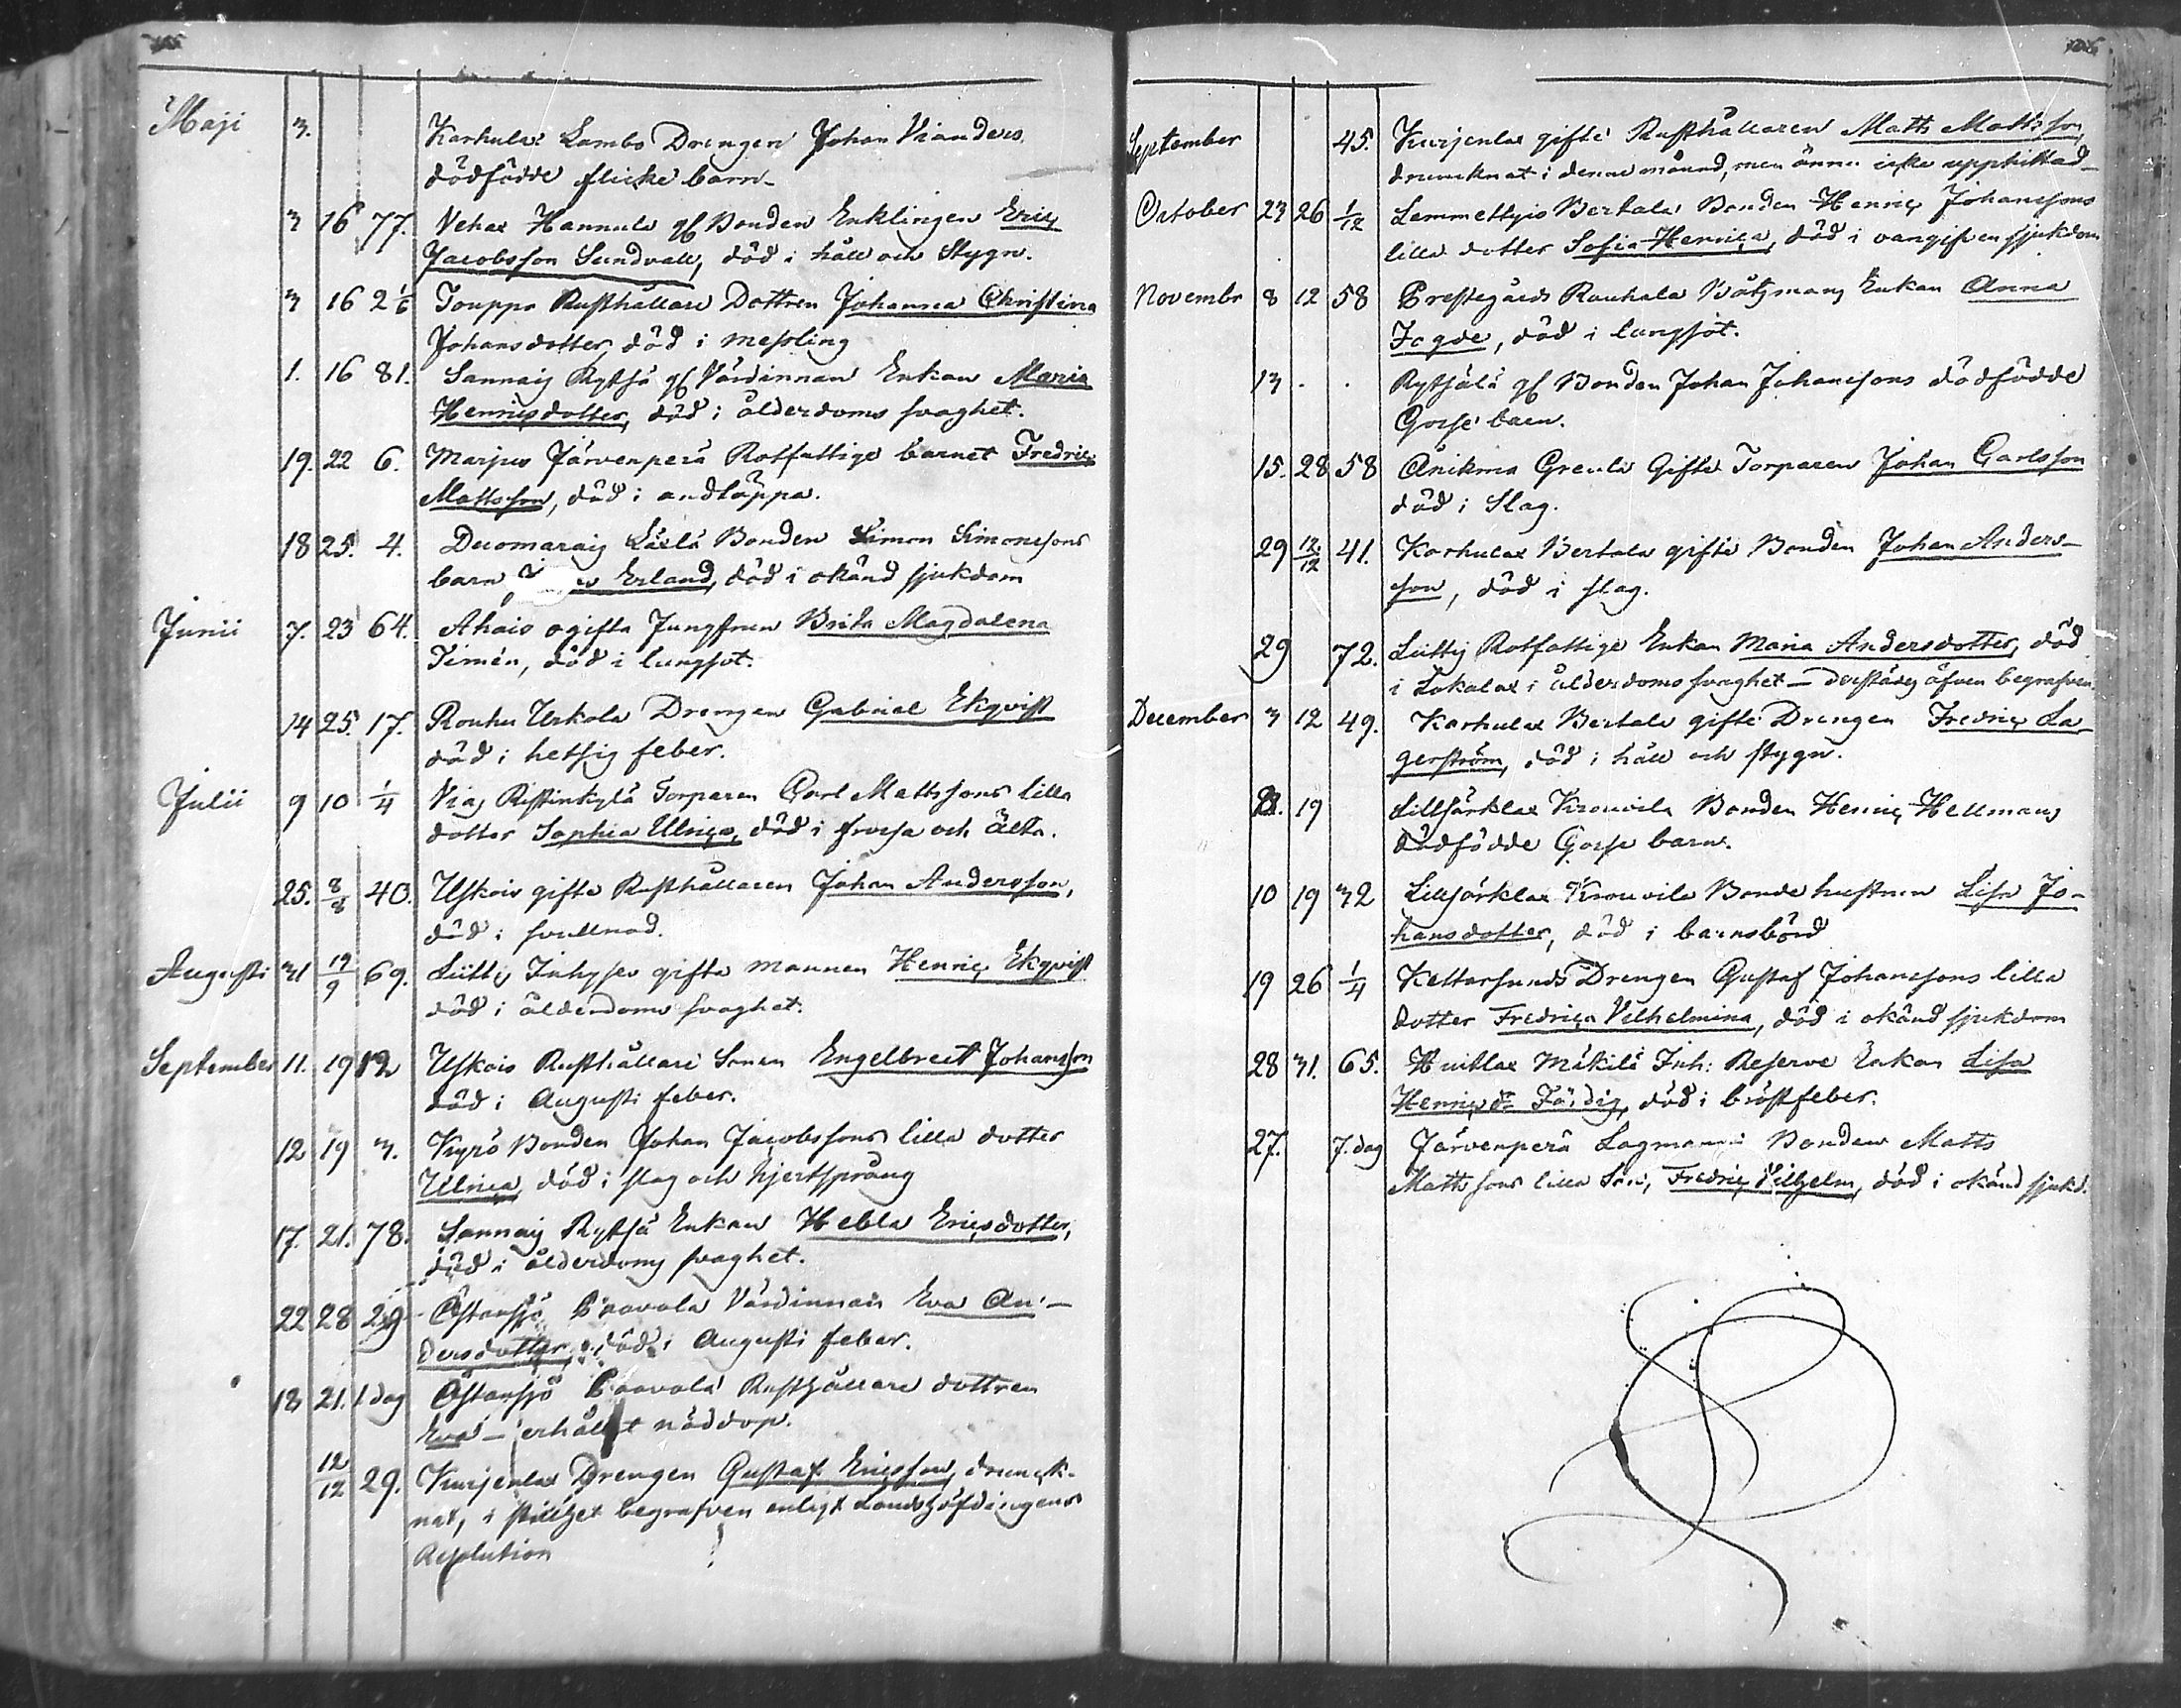 Maji 3. Karhulax Lambo Drengen Johan Vianders
dödfödde flicke barn
3 16 77. Vehax Hannula gl Bonden Enklingen Eric
Jacobsson Sundvall, död i håll och Stygn.
3 16 2 1/6 Touppo Rusthållare Dottren Johanna Christina
Johansdotter, död i messling
1. 16 81. Sannais Rytsö gl Värdinnan Enkan Maria
Henricsdotter, död i ålderdoms svaghet.
19. 22 6. Marjus Järvenperä Rotfattige barnet Fredric
Mattsson, död i andtäppa.
18 25. 4. Bonden Simon Simonssons
barn Erland, död i okänd sjukdom
Junii 7. 23 64. Ahais ogifta Jungfrun Brita Magdalena
Timén, död i lungsot.
14 25. 17. Rouhu Uskola Drengen Gabriel Ekqvist
död i hetsig feber.
Julii 9 10 1/4 Viais Ristinkylä Torparen Carl Mattssons lilla
dotter Sophia Ulrica, död i frossa och älta.
25. 8/8 40. Uskois gifte Rusthållaren Johan Andersson,
död i svullnad.
Augusti 31 19/9 69. Lüttis Inhyses gifte mannen Henric Ekqvist
död i ålderdoms svaghet.
September 11. 19 12 Uskois Rusthållare Sonen Engelbrect Johansson
död i Augusti feber.
12 19 3. Kyrö Bonden Johan Jacobssons lilla dotter
Ulrica, död i slag och hjertsprång
17. 21. 78. Sannais Rytsö Enkan Hebla Ericsdotter,
död i ålderdoms svaghet.
22 28 29 Östansjö Paavola Värdinnan Eva An-
dersdotter, död i Augusti feber.
18 21. 1 dag Östansjö Paavola Rusthållare dottren
Eva – erhållit nöddop.
12/12 29. Kurjenlax Drengen Gustaf Ericsson, drunck-
nat, i stillhet begrafven enligt Landshöfdingens
Resolution
September 45. Kurjenlax gifte Rusthållaren Matts Mattsson
drunknat i denne månad, men ännu icke upphittad
October 23 26 1/12 Lemmettyis Bertala Bonden Henric Johanssons
lilla dotter Sofia Henrica, död i oangifven sjukdom
Novembr 8 12 58 Prestegårds Rauhala Båtsmans Enkan Anna
Fogde, död i lungsot.
13 . . Rytsälä gl Bonden Johan Johanssons dödfödde
Gosse barn.
15. 28 58 Änikma Greula Gifte Torparen Johan Carlsson
död i Slag.
29 12/12 41. Karhulax Bertala gifte Bonden Johan Anders-
son, död i slag.
29 72. Lüttis Rotfattige Enkan Maria Andersdotter, död
i Lokalax i ålderdoms svaghet – derstädes äfven begrafven.
December 3 12 49. Karhulax Bertala gifte Drengen Fredric La-
gerström, död i håll och stygn.
19 Lillsärklax Krouvila Bonden Henric Hellmans
Dödfödde Gosse barn.
10 19 32 Lillsärklax Krouvila Bonde hustrun Lisa Jo-
hansdotter, död i barnsbörd
19 26 1/4 Kettarsunds Drengen Gustaf Johanssons lilla
dotter Fredrica Vilhelmina, död i okänd sjukdom
28 31. 65. Huitlax Mäkilä Inh: Reserve Enkan Lisa
Henricsdr Färdig, död i bröstfeber.
27. 7. dag Järvenperä Lagmanni Bonden Matts
Mattssons lilla Son, Fredric Vilhelm, död i okänd sjukd.